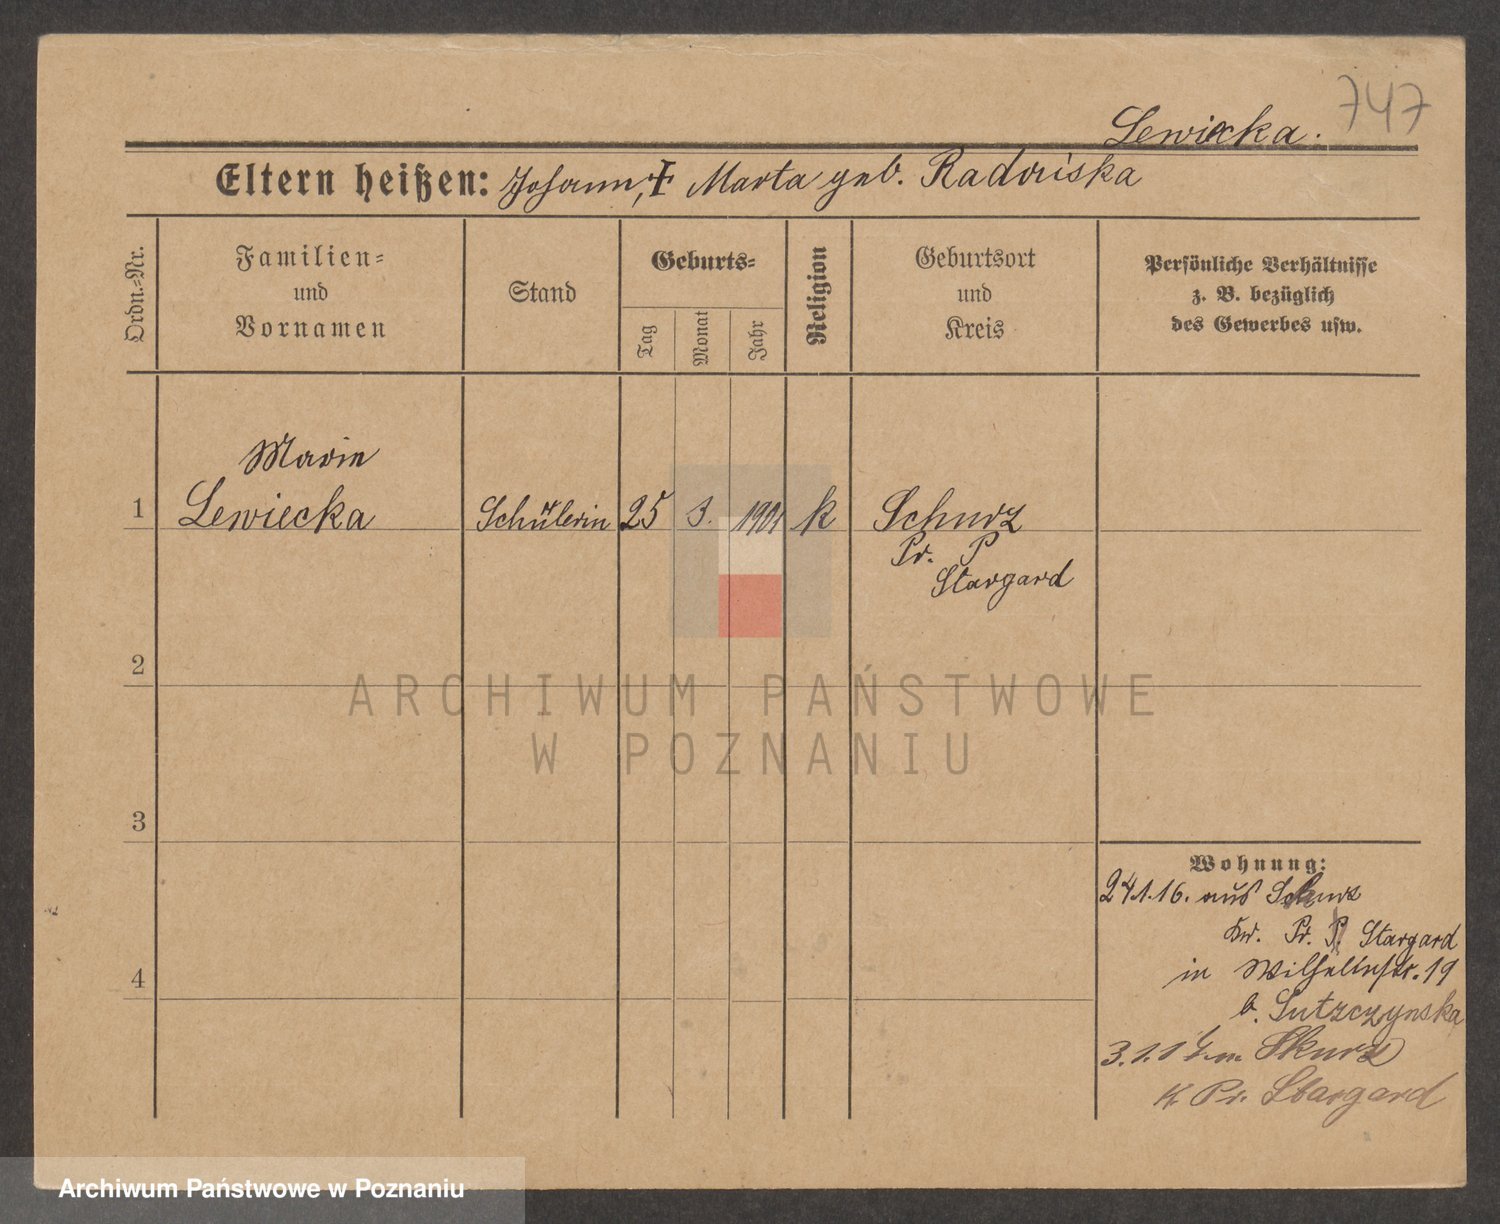 747
Lewiecka.
Eltern heißen: Johann, † Marta geb. Radoriska
Ordn.-Nr.
Familien-
und
Vornamen
Stand
Geburts-
Tag
Monat
Jahr
Religion
Geburtsort
und
Kreis
Persönliche Verhältnisse
z. B. bezüglich
des Gewerbes usw.
Marie
1 Lewiecka Schülerin 25 3. 1901 k Schurz
Pr. P
Stargard
2
ARCHIWUM PAŃSTWOWE
W POZNANIU
3
4
Wohnung:
24.1.16. aus Schurz
Kr. Pr. P. Stargard
in Wilhelmstr. 19
b. Lutzczynska
3.1.17. n. Skurz
K Pr. Stargard
Archiwum Państwowe w Poznaniu